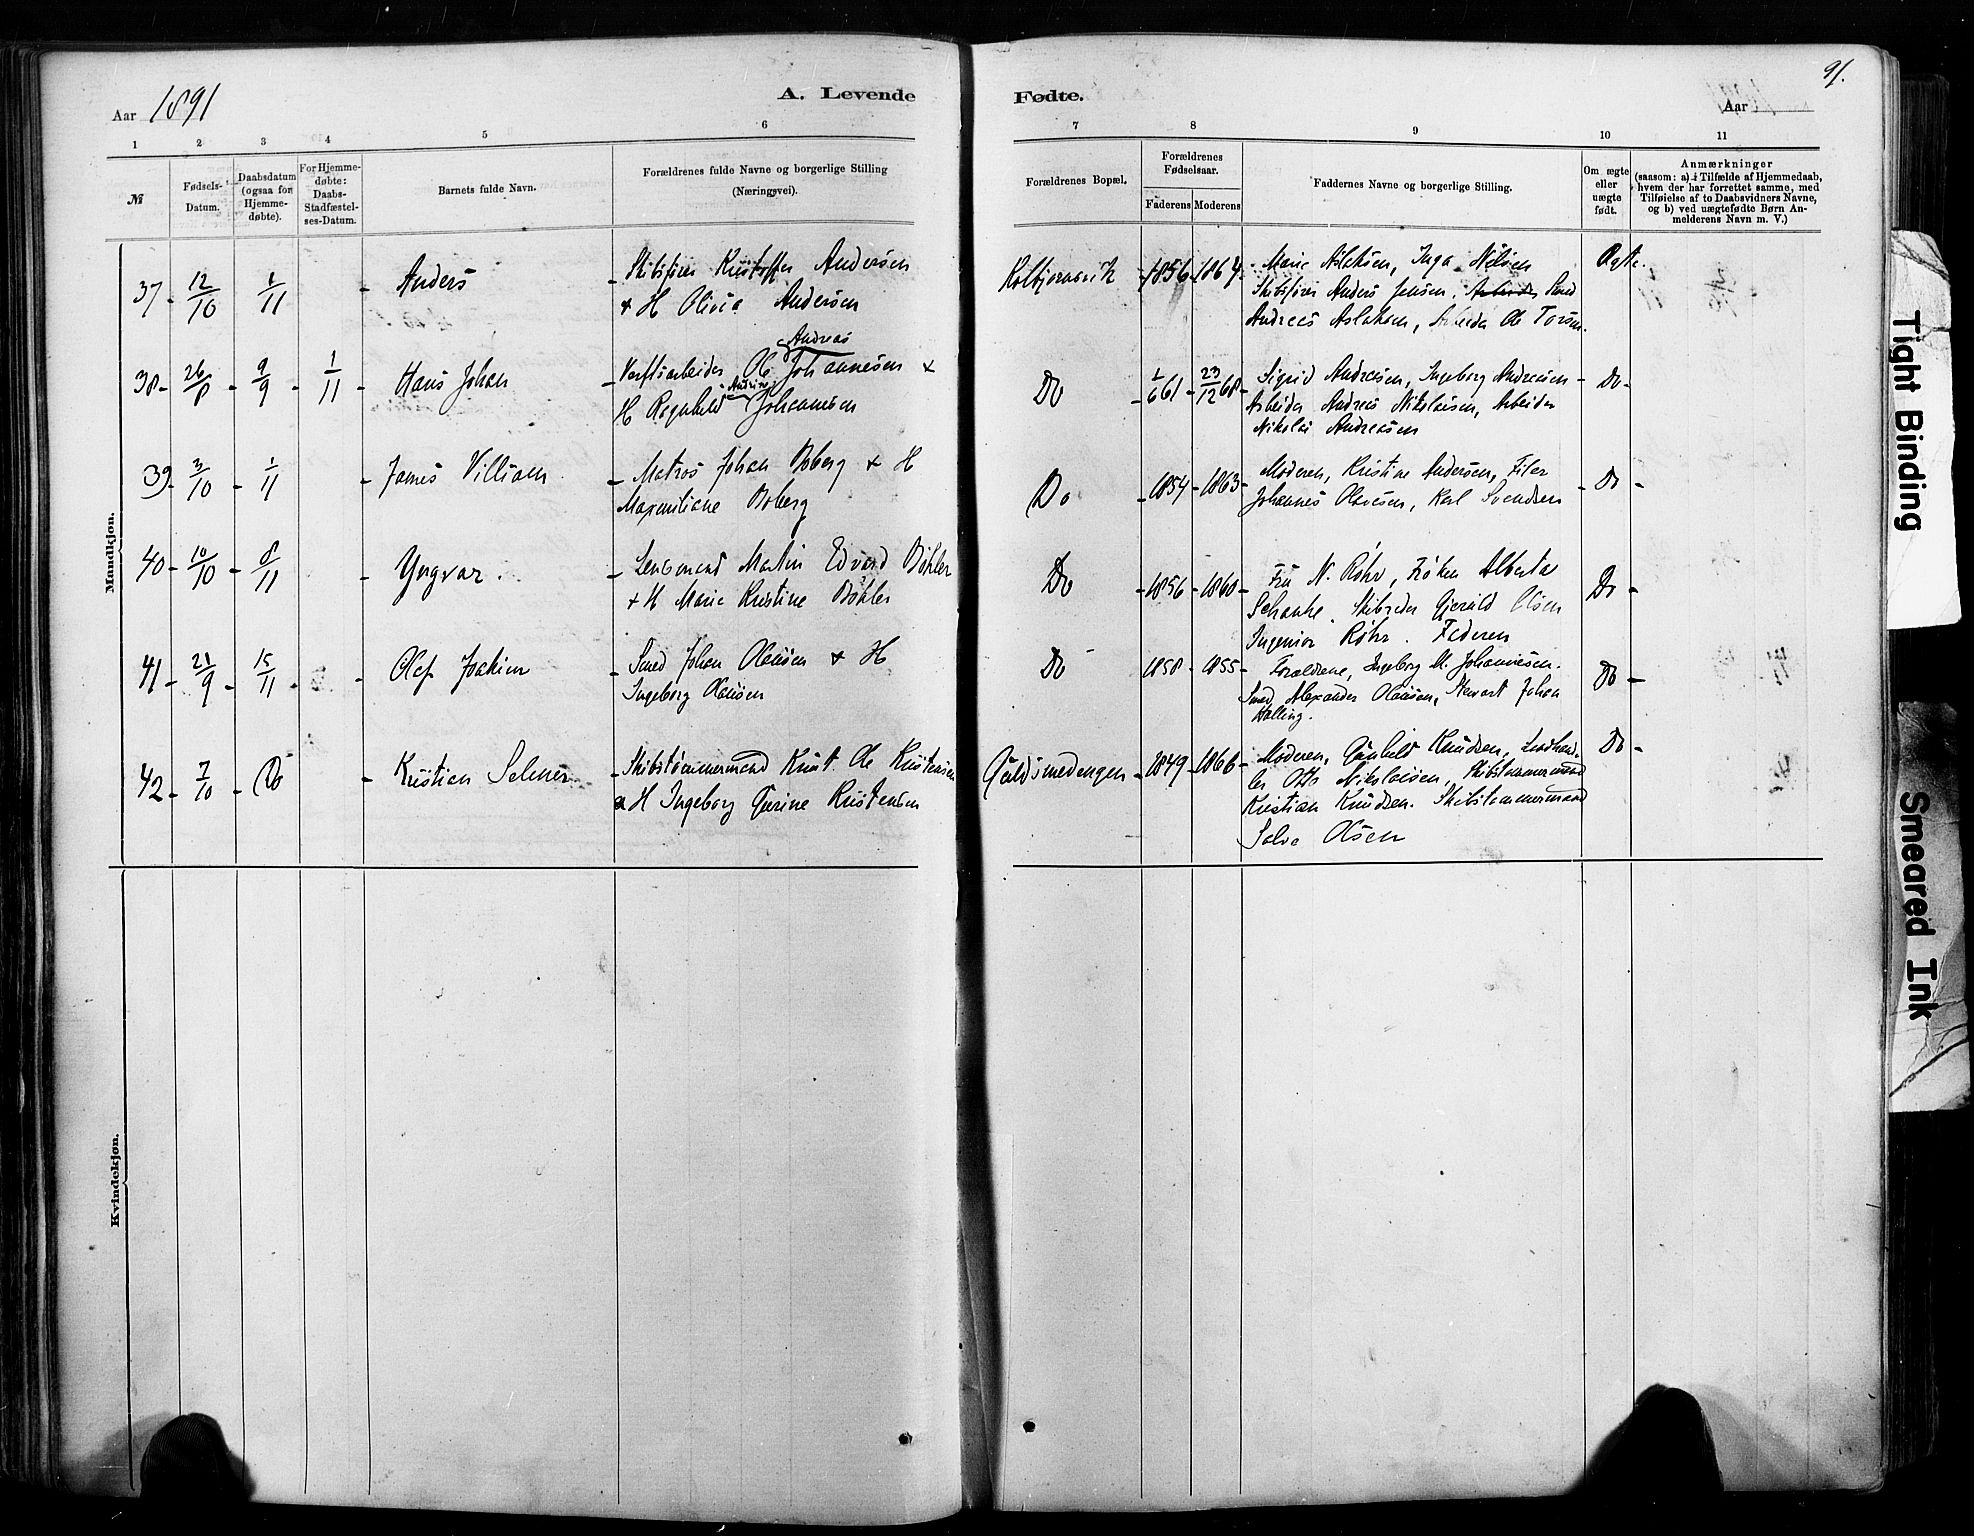 Aar 1891
A. Levende
1 2 3 4 5 6
№
Fødsels-
Datum.
Daabsdatum
(ogsaa for
Hjemme-
døbte).
For Hjemme-
døbte:
Daabs-
Stadfæstel-
ses-Datum.
Barnets fulde Navn.
Forældrenes fulde Navne og borgerlige Stilling
(Næringsvei).
Mandkjøn.
37 - 12/10 1/11 - Anders - Skibsfører Kristoffer Andersen
+ H Olivia Andersen
Andreas
38 - 26/8 - 9/9 - 1/11 - Hans Johan - Verftsarbeider Ole Johannesen +
H Ragnhild Andrine Johannesen
39 - 3/10 - 1/11 - James Villiam - Matros Johan Boberg + H
Maximiliane Boberg
40 - 10/10 - 8/11 - Yngvar. - Lensmand Martin Edvard Bøhler
+ H Marie Kristine Bøhler
41 - 21/9 - 15/11 - Olaf Joakim - Smed Johan Olausen + H
Ingeborg Olausen
42 - 7/10 - Do - Kristian Selmer - Skibstømmermand Krist. Ole Kristensen
+ H Ingeborg Gurine Kristensen
Kvindekjøn.
91.
Fødte.
Aar
7 8 9 10 11
Forældrenes Bopæl.
Forældrenes
Fødselsaar.
Faderens Moderens
Faddernes Navne og borgerlige Stilling.
Om ægte
eller
uægte
født.
Anmærkninger
(saasom: a) i Tilfælde af Hjemmedaab,
hvem der har forrettet samme, med
Tilføielse af to Daabsvidners Navne,
og b) ved uægtefødte Børn An-
melderens Navn m. V.)
Kolbjørnsvik - 1856 - 1864 - Marie Aslaksen, Inga Nilsen Ægte.
Skibsfører Anders Jensen, Arbeider Smed
Andreas Aslaksen, Arbeider Ole Torsen.
Do - 1/6 61 - 23/12 68 - Sigrid Andreasen, Ingeborg Andreasen - Do -
Arbeider Andreas Nikolaisen, Arbeider
Nikolai Andreasen
Do - 1854 - 1863 - Moderen, Kristine Andersen, Filer - Do -
Johannes Olavesen, Karl Svendsen
Do - 1856 - 1860 - Fru N. Røhr, Frøken Alberta Do -
Schanke. Skibsreder Gjeruld Olsen
Ingeniør Røhr. Faderen
Do 1858 - 1855 - Forældrene, Ingeborg M. Johannesen. Do -
Smed Alexander Olausen, Stewart Johan
Halling.
Guldsmedengen - 1849 - 1866 - Moderen, Gunhild Knudsen, Landhand- Do -
ler Otto Nikolaisen, Skibstømmermand
Kristian Knudsen. Skibstømmermand
Salve Olsen
Tight Binding
Smeared Ink